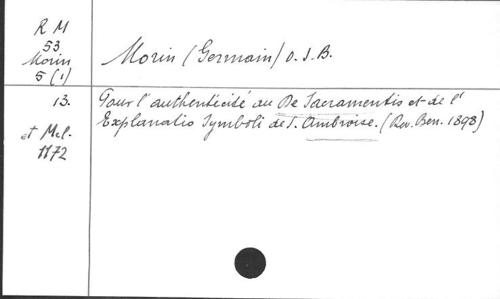 R M
53
Morin
5 (1)
Morin (Germain) O.S.B.
13.
et Mel.
1172
Pour l'authenticité du De Sacramentis et de l'
Explanatio Symboli de S. Ambroise. (Rev. Ben. 1898)